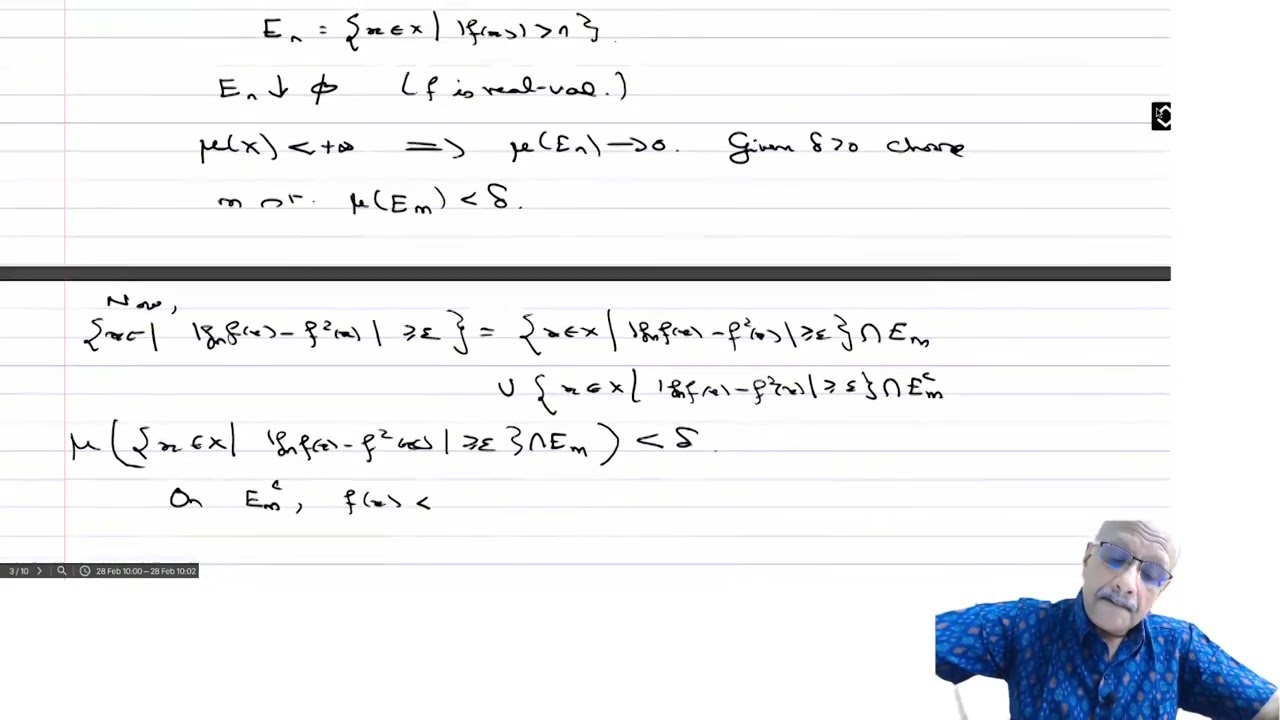 E_n = {x ∈ X | |f(x)| > n}.
E_n ↓ φ (f is real-val.)
μ(X) < +∞ ⟹ μ(E_n) → 0. Given δ>0 choose
m s.t. μ(E_m) < δ.
Now,
{x ∈ | |f_n f(x) - f²(x)| ≥ ε} = {x ∈ X | |f_n f(x) - f²(x)| ≥ ε} ∩ E_m
∪ {x ∈ X | |f_n f(x) - f²(x)| ≥ ε} ∩ E_m^c
μ({x ∈ X | |f_n f(x) - f²(x)| ≥ ε} ∩ E_m) < δ.
On E_m^c, f(x) <
3 / 10 28 Feb 10:00 – 28 Feb 10:02